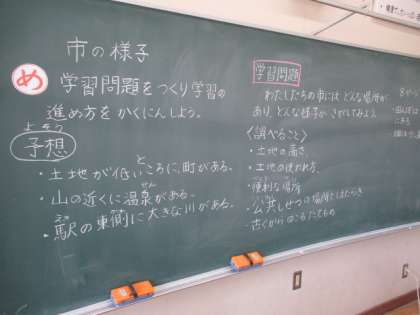 市の様子
め 学習問題をつくり学習の
進め方をかくにんしよう。
よそう
予想
・土地が低いところに、町がある。
せん
・山の近くに温泉がある。
えき がわ
・駅の東側に大きな川がある。
学習問題
わたしたちの市にはどんな場所が
あり、どんな様子か
〈調べること〉
・土地の高さ
・土地の使われ方
べん
・便利な場所
・公共しせつの場所とはたらき
・古くからのこるたてもの